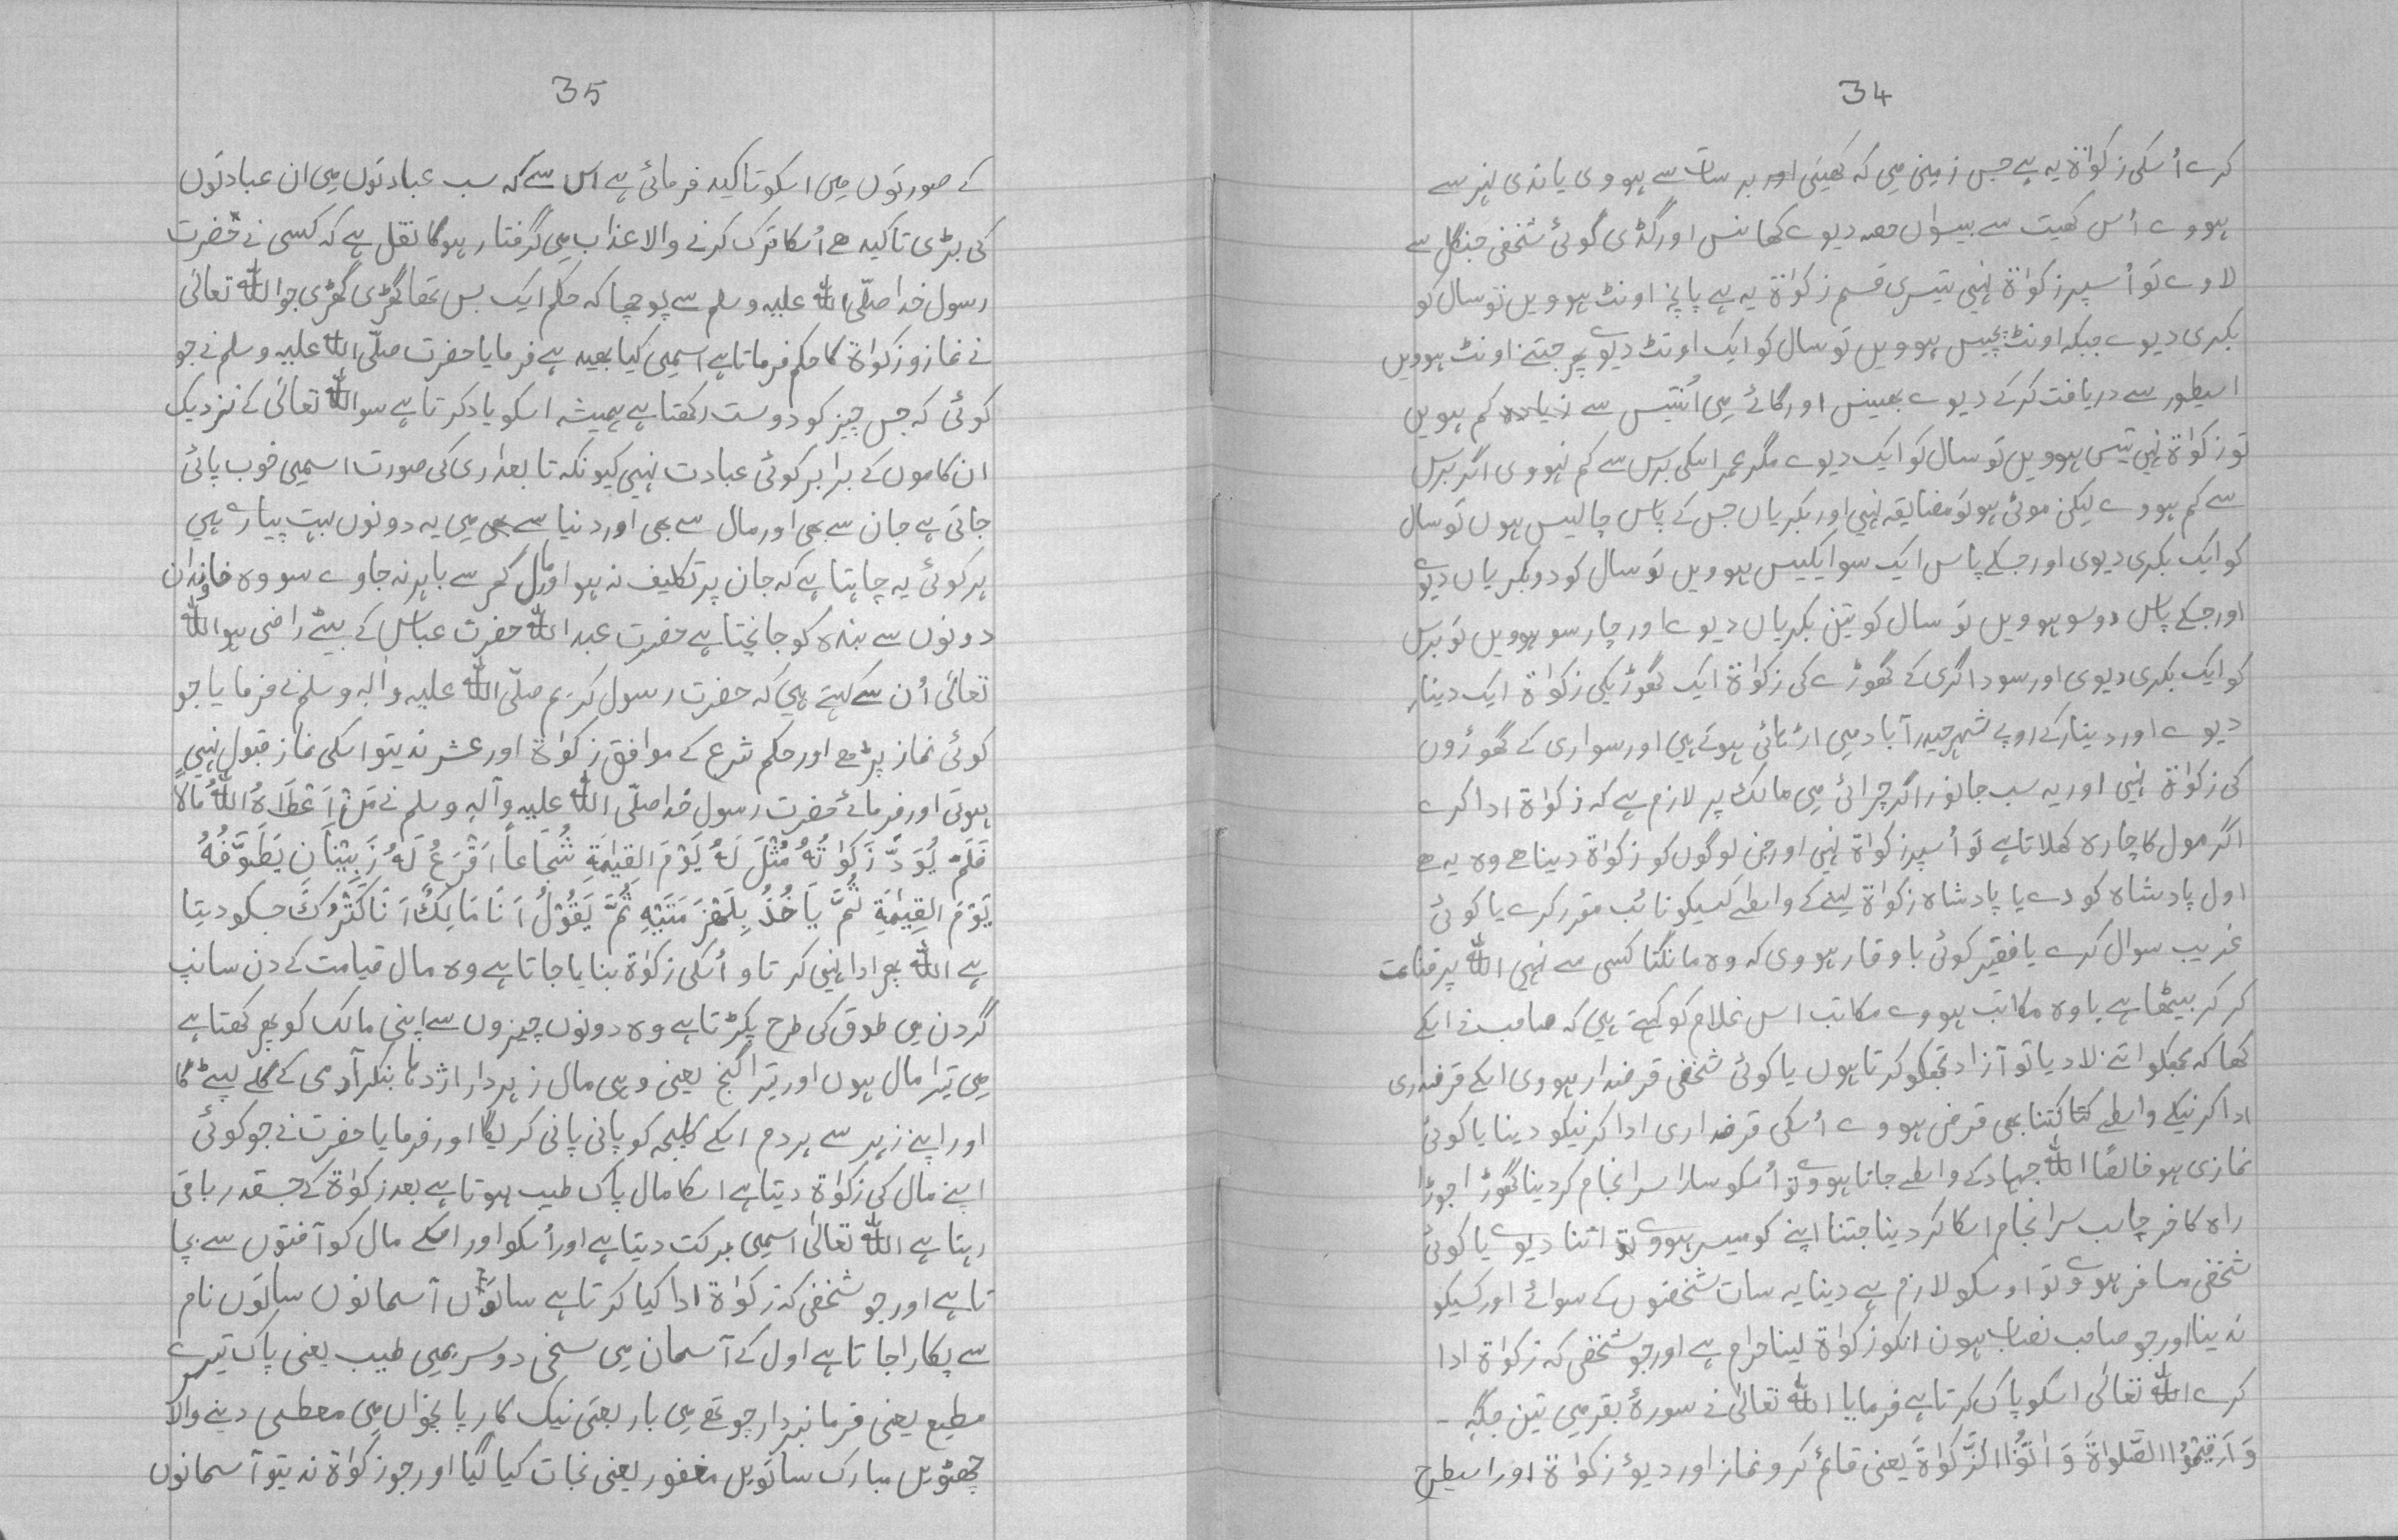 34
کرے اُسکی زکوٰۃ یہ ہے جس زمینی میں کہ کھیتی اور برسات سے ہووی یا ندی نہر سے
ہووے اُس کھیت سے بیسواں حصہ دیوے گھانس اور لکڑی کوئی شخص جنگل سے
لاوے تو اُسپر زکوٰۃ نہیں تیسری قسم زکوٰۃ یہ ہے پانچ اونٹ ہوویں تو سال کو
بکری دیوے جبکہ اونٹ پچیس ہوویں تو سال کو ایک اونٹ دیوے پھر جتنے اونٹ ہوویں
اسیطور سے دریافت کرکے دیوے بھینس اور گائے میں اُنتیس سے زیادہ کم ہویں
تو زکوٰۃ نہیں تیس ہوویں تو سال کو ایک دیوے مگر عمر اسکی برس سے کم نہووی اگر برس
سے کم ہووے لیکن موٹی ہو تو مضایقہ نہیں اور بکریاں جس کے پاس چالیس ہوں تو سال
کو ایک بکری دیوی اور جسکے پاس ایک سو ایکیس ہوویں تو سال کو دو بکریاں دیوے
اور جسکے پاس دوسو ہوویں تو سال کو تین بکریاں دیوے اور چار سو ہوویں تو برس
کو ایک بکری دیوی اور سوداگری کے گھوڑے کی زکوٰۃ ایک گھوڑیکی زکوٰۃ ایک دینار
دیوے اور دینار کے روپے شہر حیدرآباد میں اڑہائی ہوتے ہیں اور سواری کے گھوڑوں
کی زکوٰۃ نہیں اور یہ سب جانور اگر چرائی میں مالک پر لازم ہے کہ زکوٰۃ ادا کرے
اگر مول کا چارہ کھلاتا ہے تو اُسپر زکوٰۃ نہیں اور جن لوگوں کو زکوٰۃ دینا ھے وہ یہ ھے
اول پادشاہ کو دے یا پادشاہ زکوٰۃ لینے کے واسطے کسیکو نائب مقرر کرے یا کوئی
غریب سوال کرے یا فقیر کوئی باوقار ہووی کہ وہ مانگتا کسی سے نہیں اللہ پر قناعت
کر کر بیٹھا ہے یا وہ مکاتب ہووے مکاتب اس غلام کو کہتے ہیں کہ صاحب نے اسکے
کھا کہ مجھکو اتنے لادیا تو آزاد تجھکو کرتا ہوں یا کوئی شخص قرضدار ہووی اسکے قرضدری
ادا کرنیکے واسطے کتنا کتنا بھی قرض ہووے اُسکی قرضداری ادا کرنیکو دینا یا کوئی
نمازی ہو خالصًا اللہ جہاد کے واسطے جاتا ہووے تو اُسکو سارا سرانجام کردینا گھوڑا جوڑا
راہ کا فرچاب سرانجام اسکا کر دینا جتنا اپنے کو میسر ہووے تو اتنا دیوے یا کوئی
شخص مسافر ہووے تو اوسکو لازم ہے دینا یہ سات شخصوں کے سوائے اور کسیکو
ندینا اور جو صاحب نصاب ہون انکو زکوٰۃ لینا حرام ہے اور جو شخص کہ زکوٰۃ ادا
کرے اللہ تعالٰی اسکو پاک کرتا ہے فرمایا اللہ تعالٰی نے سورۂ بقر میں تین جگہ ۔
وَاَقِیْمُوْا الصَّلوٰاۃَ وَ اٰتُوْا الزَّکوٰاۃَ یعنی قائم کرو نماز اور دیوٴ زکوٰاۃ اور اسیطرح
35
کے صورتوں میں اسکو تاکید فرمائی ہے اس سے کہ سب عبادتوں میں ان عبادتوں
کی بڑی تاکید ھے اُسکا ترک کرنے والا عذاب میں گرفتار ہوگا نقل ہے کہ کسی نے حضرت
رسول خدا صلّی اللہ علیہ وسلم سے پوچھا کہ حکم ایک بس تھا گھڑی گھڑی جو اللہ تعالٰی
نے نماز و زکوٰاۃ کا حکم فرماتا ہے اسمیں کیا بھید ہے فرمایا حضرت صلّی اللہ علیہ وسلم نے جو
کوئی کہ جس چیز کو دوست رکھتا ہے ہمیشہ اسکو یاد کرتا ہے سو اللہ تعالٰی کے نزدیک
ان کاموں کے برابر کوئی عبادت نہیں کیونکہ تابعداری کی صورت اسمیں خوب پائی
جاتی ہے جان سے بھی اور مال سے بھی اور دنیا سے بھی میں یہ دونوں بہت پیارے ہیں
ہر کوئی یہ چاہتا ہے کہ جان پر تکلیف نہ ہو اور مال گھر سے باہر نہ جاوے سو وہ خاوند ان
دونوں سے بندہ کو جانچتا ہے حضرت عبداللہ حضرت عباس کے بیٹے راضی ہو اللہ
تعالٰی اُن سے کہتے ہیں کہ حضرت رسول کریم صلّی اللہ علیہ واٰلہ وسلم نے فرمایا جو
کوئی نماز پڑھے اور حکم شرع کے موافق زکوٰاۃ اور عشر ندیتو اسکی نماز قبول نہیں
ہوتی اور فرمائے حضرت رسول خدا صلّی اللہ علیہ وآلہ وسلم نے مَنْ اَعْطَاہُ اللہُ مَالاً
فَلَمْ یُوَدِّ زَکَوٰاتُہُ مُثِّلَ لَہُ یَوْمَ القِیٰمَۃِ شُجَاعاً اَقْرَعُ لَہُ زَبِیْبَتَانِ یَطَوَّقُہُ
یَوْمَ القِیٰمَۃِ ثُمَّ یَاخُذُ بِلَھْزَمَتَیْہِ ثُمَّ یَقُوْلُ اَنَا مَالِکَ اَنَا کَنْزُکَ جسکو دیتا
ہے اللہ پھر ادا نہیں کرتا و اُسکی زکوٰۃ بنایا جاتا ہے وہ مال قیامت کے دن سانپ
گردن میں طوق کی طرح پکڑتا ہے وہ دونوں چیزوں سے اپنی مالک کو پھر کھتا ہے
میں تیرا مال ہوں اور تیرا گنج یعنی وہی مال زہردار اژدہا بنکر آدمی کے گلے لپیٹے گا
اور اپنے زہر سے ہردم اسکے کلیجہ کو پانی پانی کریگا اور فرمایا حضرت نے جو کوئی
اپنے مال کی زکوٰاۃ دیتا ہے اسکا مال پاک طیب ہوتا ہے بعد زکوٰاۃ کے جسقدر باقی
رہتا ہے اللہ تعالٰی اسمیں برکت دیتا ہے اور اُسکو اور اسکے مال کو آفتوں سے بچا
تا ہے اور جو شخص کہ زکوٰاۃ ادا کیا کرتا ہے ساتوں آسمانوں ساتوں نام
سے پکارا جاتا ہے اول کے آسمان میں سخی دوسریمیں طیب یعنی پاک تیسرے
مطیع یعنی فرمانبردار چوتھے میں بار یعنی نیک کار پانچواں میں معطی دینے والا
چھٹویں مبارک ساتویں مغفور یعنی نجات کیا گیا اور جو زکوٰاۃ ندیتو آسمانوں